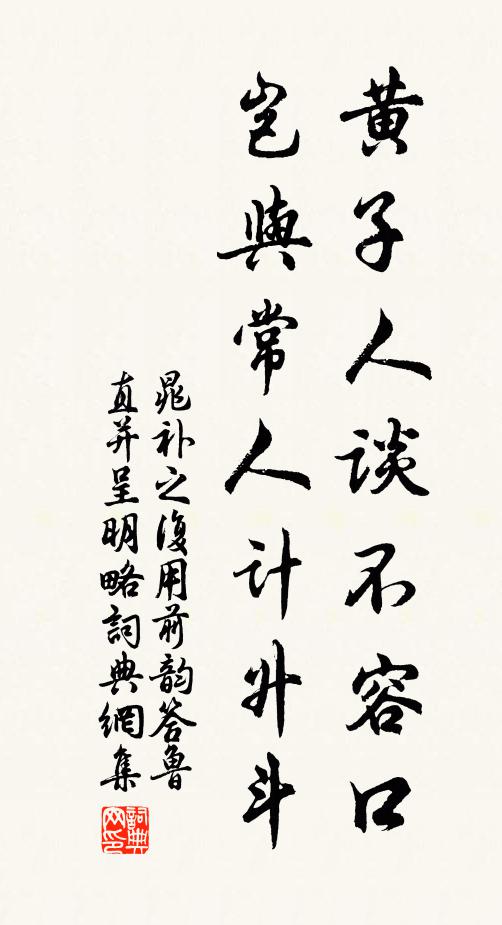 黄子人談不容口
豈與常人計升斗
晁补之復用前韵答魯
直并呈明略詞典網集
詞典网印